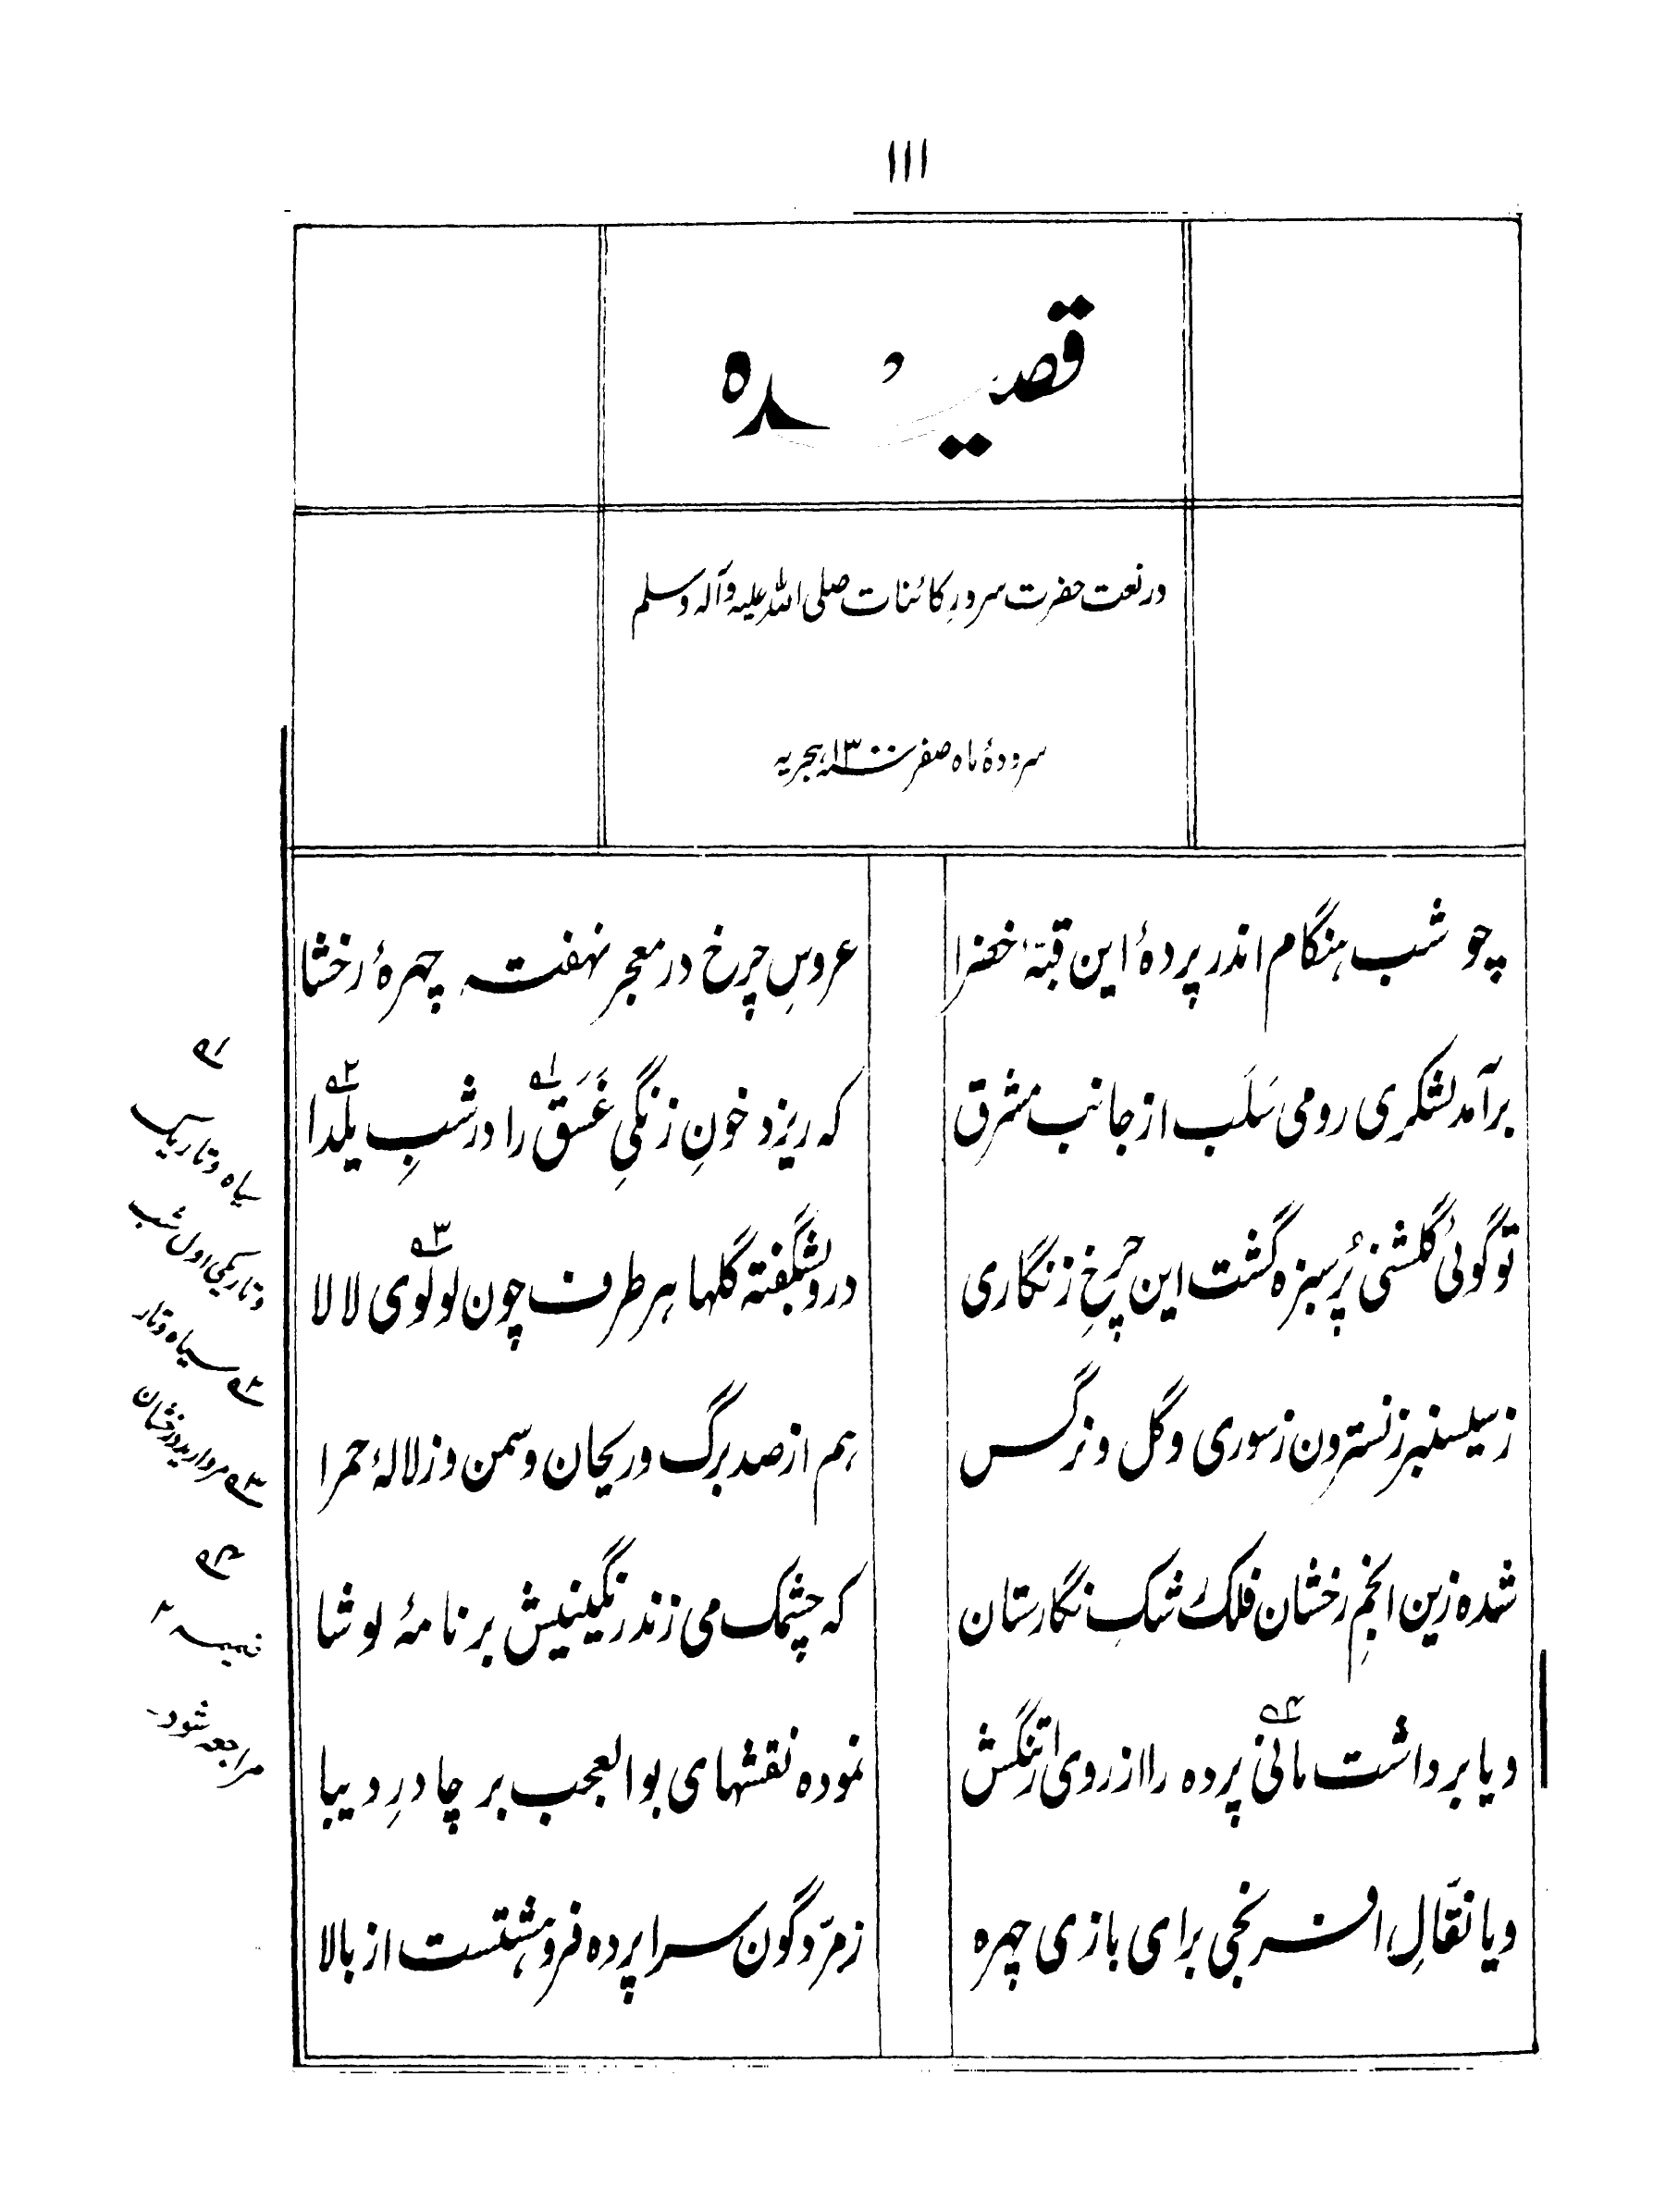 ۱۱۱
قصیده
در نعت حضرت سرورِ کائنات صلی الله علیه وآله وسلم
سرودۀ ماه صفر سنه ۱۳۰۰ هجریه
چو شب هنگام اندر پردۀ این قبّۀ خضرا
عروسِ چرخ در معجر نهفته چهرۀ رخشا
برآمد لشکری رومی سَلَب از جانب مشرق
که ریزد خونِ زنگیِ غَسَق۱ را در شبِ یلدا۲
تو گوئی گلشنی پُر سبزه گشت این چرخِ زنگاری
درو بشگفته گلها هر طرف چون لولوی لالا۳
ز سیسنبر ز نسترون ز سوری و گل و نرگس
هم از صد برگ و ریحان و سمن وز لالۀ حمرا
شده زین انجمِ رخشان فلک رشکِ نگارستان
که چشمک می زند رنگینیش بر نامۀ لوشا
و یا برداشت مانی۴ پرده را از روی ارتنگش
نموده نقشهای بوالعجب بر چادرِ دیبا
و یا نقّالِ افرنجی برای بازی چهره
زمرّدگون سراپرده فروهشتست از بالا
۱
سیاه و تاریک
و تاریکی اول شب
۲ سیاه و تار
۳ مروارید درخشان
۴
ضمیمه
مراجعه شود-